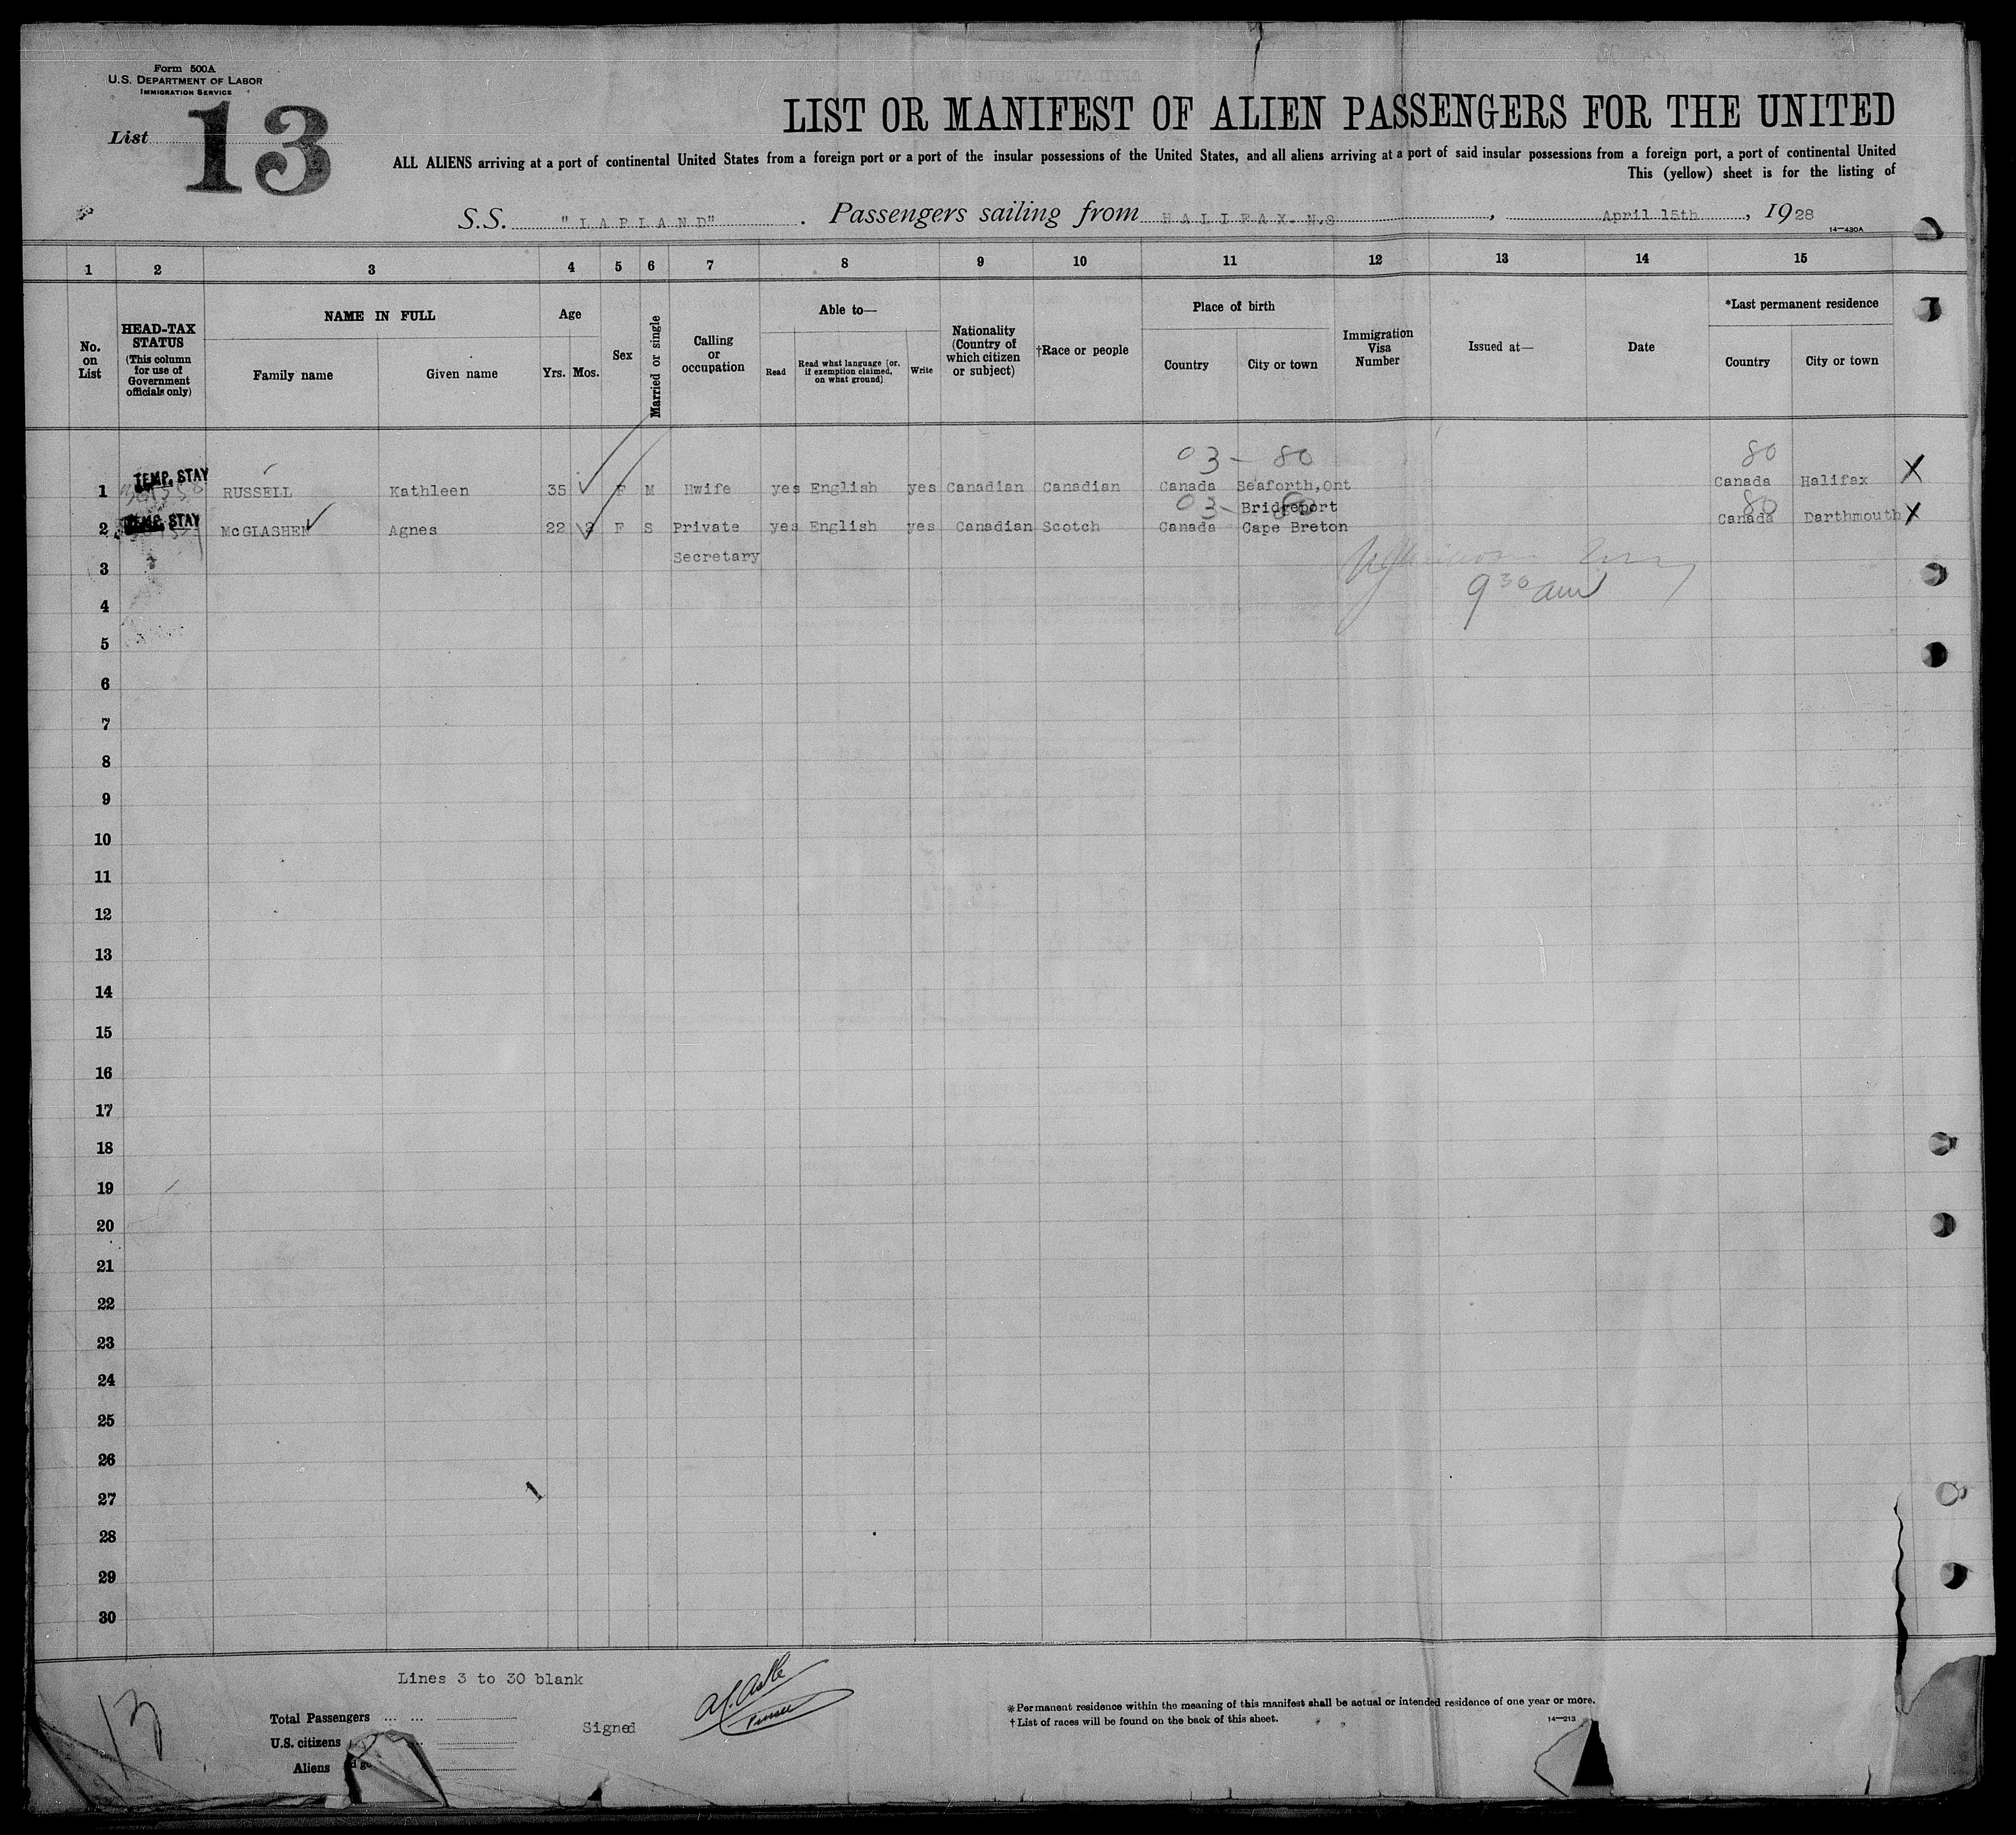 Form 500A
U.S. DEPARTMENT OF LABOR
IMMIGRATION SERVICE
List 13
LIST OR MANIFEST OF ALIEN PASSENGERS FOR THE UNITED
ALL ALIENS arriving at a port of continental United States from a foreign port or a port of the insular possessions of the United States, and all aliens arriving at a port of said insular possessions from a foreign port, a port of continental United
This (yellow) sheet is for the listing of
S.S. "LAPLAND". Passengers sailing from HALIFAX. N.S, April 15th, 1928
14—430A
1 2 3 4 5 6 7 8 9 10 11 12 13 14 15
No. on List
HEAD-TAX STATUS (This column for use of Government officials only)
NAME IN FULL
Family name Given name
Age
Yrs. Mos.
Sex
Married or single
Calling or occupation
Able to—
Read
Read what language [or, if exemption claimed, on what ground]
Write
Nationality (Country of which citizen or subject)
†Race or people
Place of birth
Country City or town
Immigration Visa Number
Issued at—
Date
*Last permanent residence
Country City or town
03 – 80 80
1 TEMP. STAY RUSSELL Kathleen 35 F M Hwife yes English yes Canadian Canadian Canada Seaforth,Ont Canada Halifax X
03 – 80 Bridgeport 80
2 TEMP. STAY McGLASHEN Agnes 22 F S Private yes English yes Canadian Scotch Canada Cape Breton Canada Darthmouth X
Secretary
3
9 30 am
4
5
6
7
8
9
10
11
12
13
14
15
16
17
18
19
20
21
22
23
24
25
26
27
28
29
30
Lines 3 to 30 blank
13
Total Passengers
U.S. citizens
Aliens
Signed
Purser
*Permanent residence within the meaning of this manifest shall be actual or intended residence of one year or more.
†List of races will be found on the back of this sheet.
14—213